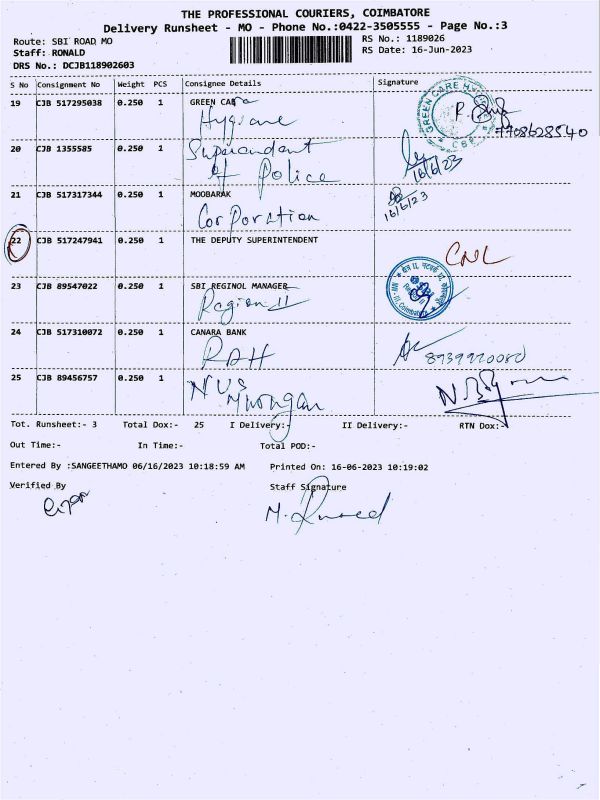 THE PROFESSIONAL COURIERS, COIMBATORE
Delivery Runsheet - MO - Phone No.:0422-3505555 - Page No.:3
Route: SBI ROAD MO RS No.: 1189026
Staff: RONALD RS Date: 16-Jun-2023
DRS No.: DCJB118902603
S No Consignment No Weight PCS Consignee Details Signature
19 CJB 517295038 0.250 1 GREEN CARe
Hygiene
GREEN CARE
CBE
7708628540
20 CJB 1355585 0.250 1 Superendant
of Police
16/6/23
21 CJB 517317344 0.250 1 MOOBARAK
Corporation
16/6/23
22 CJB 517247941 0.250 1 THE DEPUTY SUPERINTENDENT
CNL
23 CJB 89547022 0.250 1 SBI REGINOL MANAGER
Region II
24 CJB 517310072 0.250 1 CANARA BANK
RAH
8939920080
25 CJB 89456757 0.250 1 NVS
Murongan
Tot. Runsheet:- 3 Total Dox:- 25 I Delivery:- II Delivery:- RTN Dox:-
Out Time:- In Time:- Total POD:-
Entered By :SANGEETHAMO 06/16/2023 10:18:59 AM Printed On: 16-06-2023 10:19:02
Verified By Staff Signature